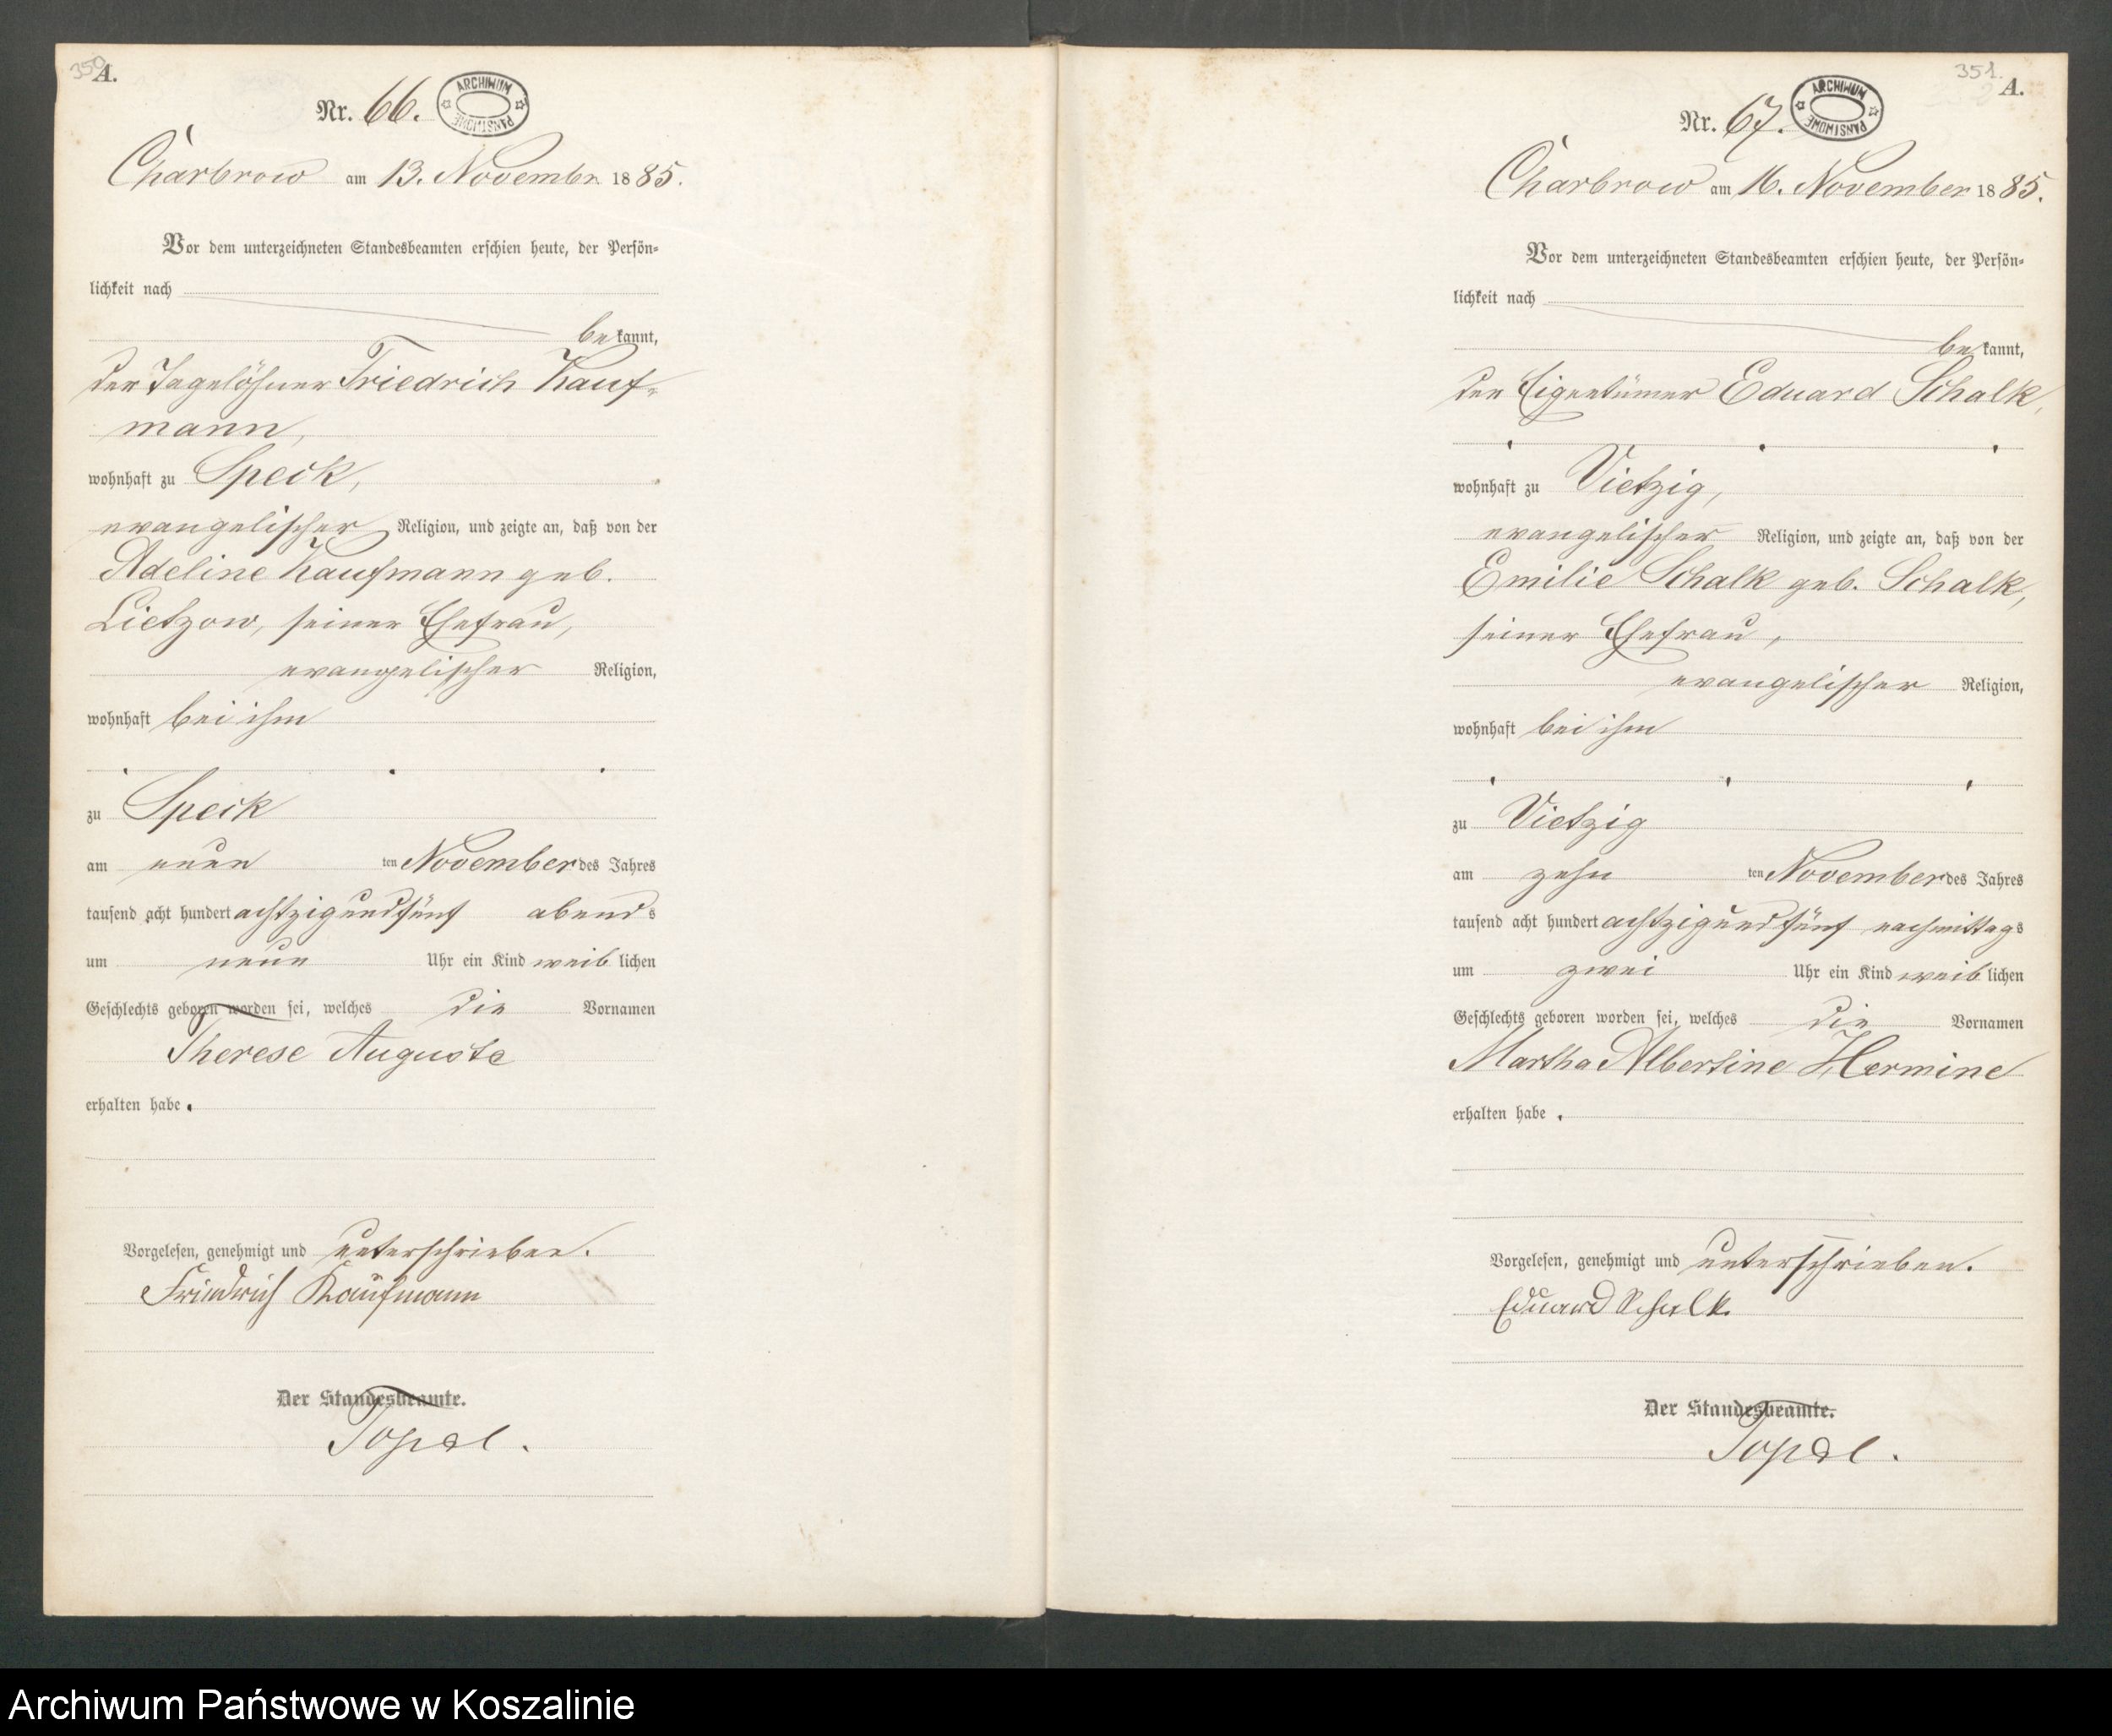 350
A.
Nr. 66.
ARCHIWUM PAŃSTWOWE
Charbrow am 13. Novembr. 1885.
Vor dem unterzeichneten Standesbeamten erschien heute, der Persön-
lichkeit nach
bekannt,
der Tagelöhner Friedrich Kauf-
mann,
wohnhaft zu Speck,
evangelischer Religion, und zeigte an, daß von der
Adeline Kaufmann geb.
Lietzow, seiner Ehefrau,
evangelischer Religion,
wohnhaft bei ihm
zu Speck
am neun ten November des Jahres
tausend acht hundert achtzigundfünf abends
um neun Uhr ein Kind weiblichen
Geschlechts geboren worden sei, welches die Vornamen
Therese Auguste
erhalten habe.
Vorgelesen, genehmigt und unterschrieben.
Friedrich Kaufmann
Der Standesbeamte.
Topel.
351.
A.
Nr. 67.
ARCHIWUM PAŃSTWOWE
Charbrow am 16. November 1885.
Vor dem unterzeichneten Standesbeamten erschien heute, der Persön-
lichkeit nach
bekannt,
der Eigentümer Eduard Schalk,
wohnhaft zu Vietzig,
evangelischer Religion, und zeigte an, daß von der
Emilie Schalk geb. Schalk,
seiner Ehefrau,
evangelischer Religion,
wohnhaft bei ihm
zu Vietzig
am zehn ten November des Jahres
tausend acht hundert achtzigundfünf nachmittags
um zwei Uhr ein Kind weiblichen
Geschlechts geboren worden sei, welches die Vornamen
Martha Albertine Hermine
erhalten habe.
Vorgelesen, genehmigt und unterschrieben.
Eduard Schalk.
Der Standesbeamte.
Topel.
Archiwum Państwowe w Koszalinie